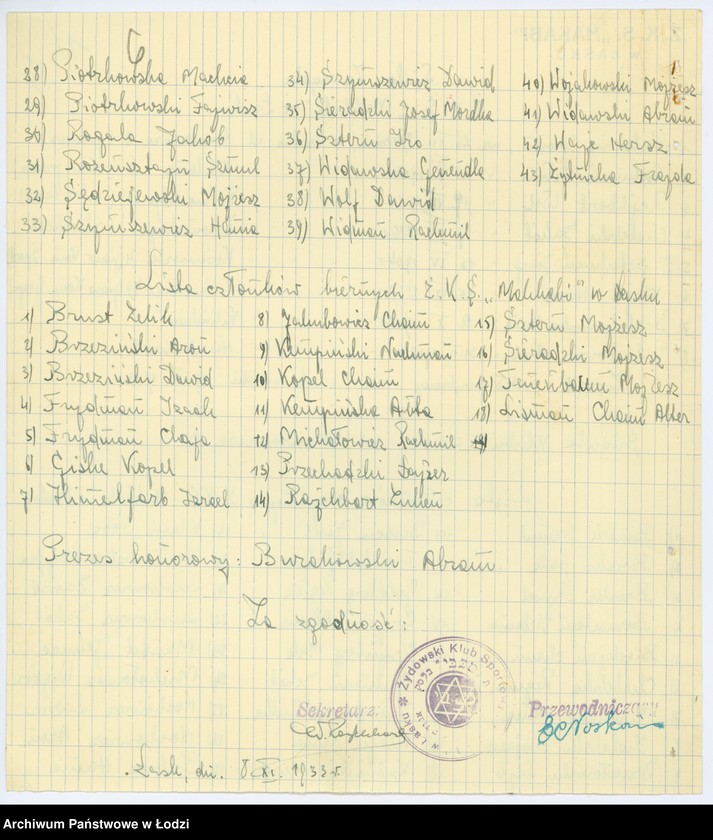 6
28) Piotrkowska Machcia
29) Piotrkowski Fajwisz
30) Rogala Jakób
31) Rozensztajn Szmul
32) Sędziejewski Mojżesz
33) Szynszewicz Hania
34) Szynszewicz Dawid
35) Sieradzki Josef Mordka
36) Sztern Iro
37) Widawska Genendla
38) Wolf Dawid
39) Widman Rachmil
40) Wojakowski Mojżesz
41) Widawski Abram
42) Waje Hersz
43) Frajda
Lista członków biernych Ż.K.S. „Makkabi” w Łasku
1) Brust Zelik
2) Brzeziński Aron
3) Brzeziński Dawid
4) Frydman Icaak
5) Frydman Chaja
6) Giske Kopel
7) Himelfarb Izrael
8) Jakubowicz Chaim
9) Kempiński Nachman
10) Kopel Chaim
11) Kempińska Alta
12) Michałowicz Rachmil
13) Przechadzki Lajzer
14) Rajchbart Luzen
15) Sztern Mojżesz
16) Sieradzki Mojżesz
17) Tenenbaum Mojżesz
18) Lisman Chaim Alter
Prezes honorowy: Burakowski Abram
Za zgodność:
Żydowski Klub Sportowy
Sekretarz:
Przewodniczący
Łask, dn. 8.XI.1933 r.
Archiwum Państwowe w Łodzi